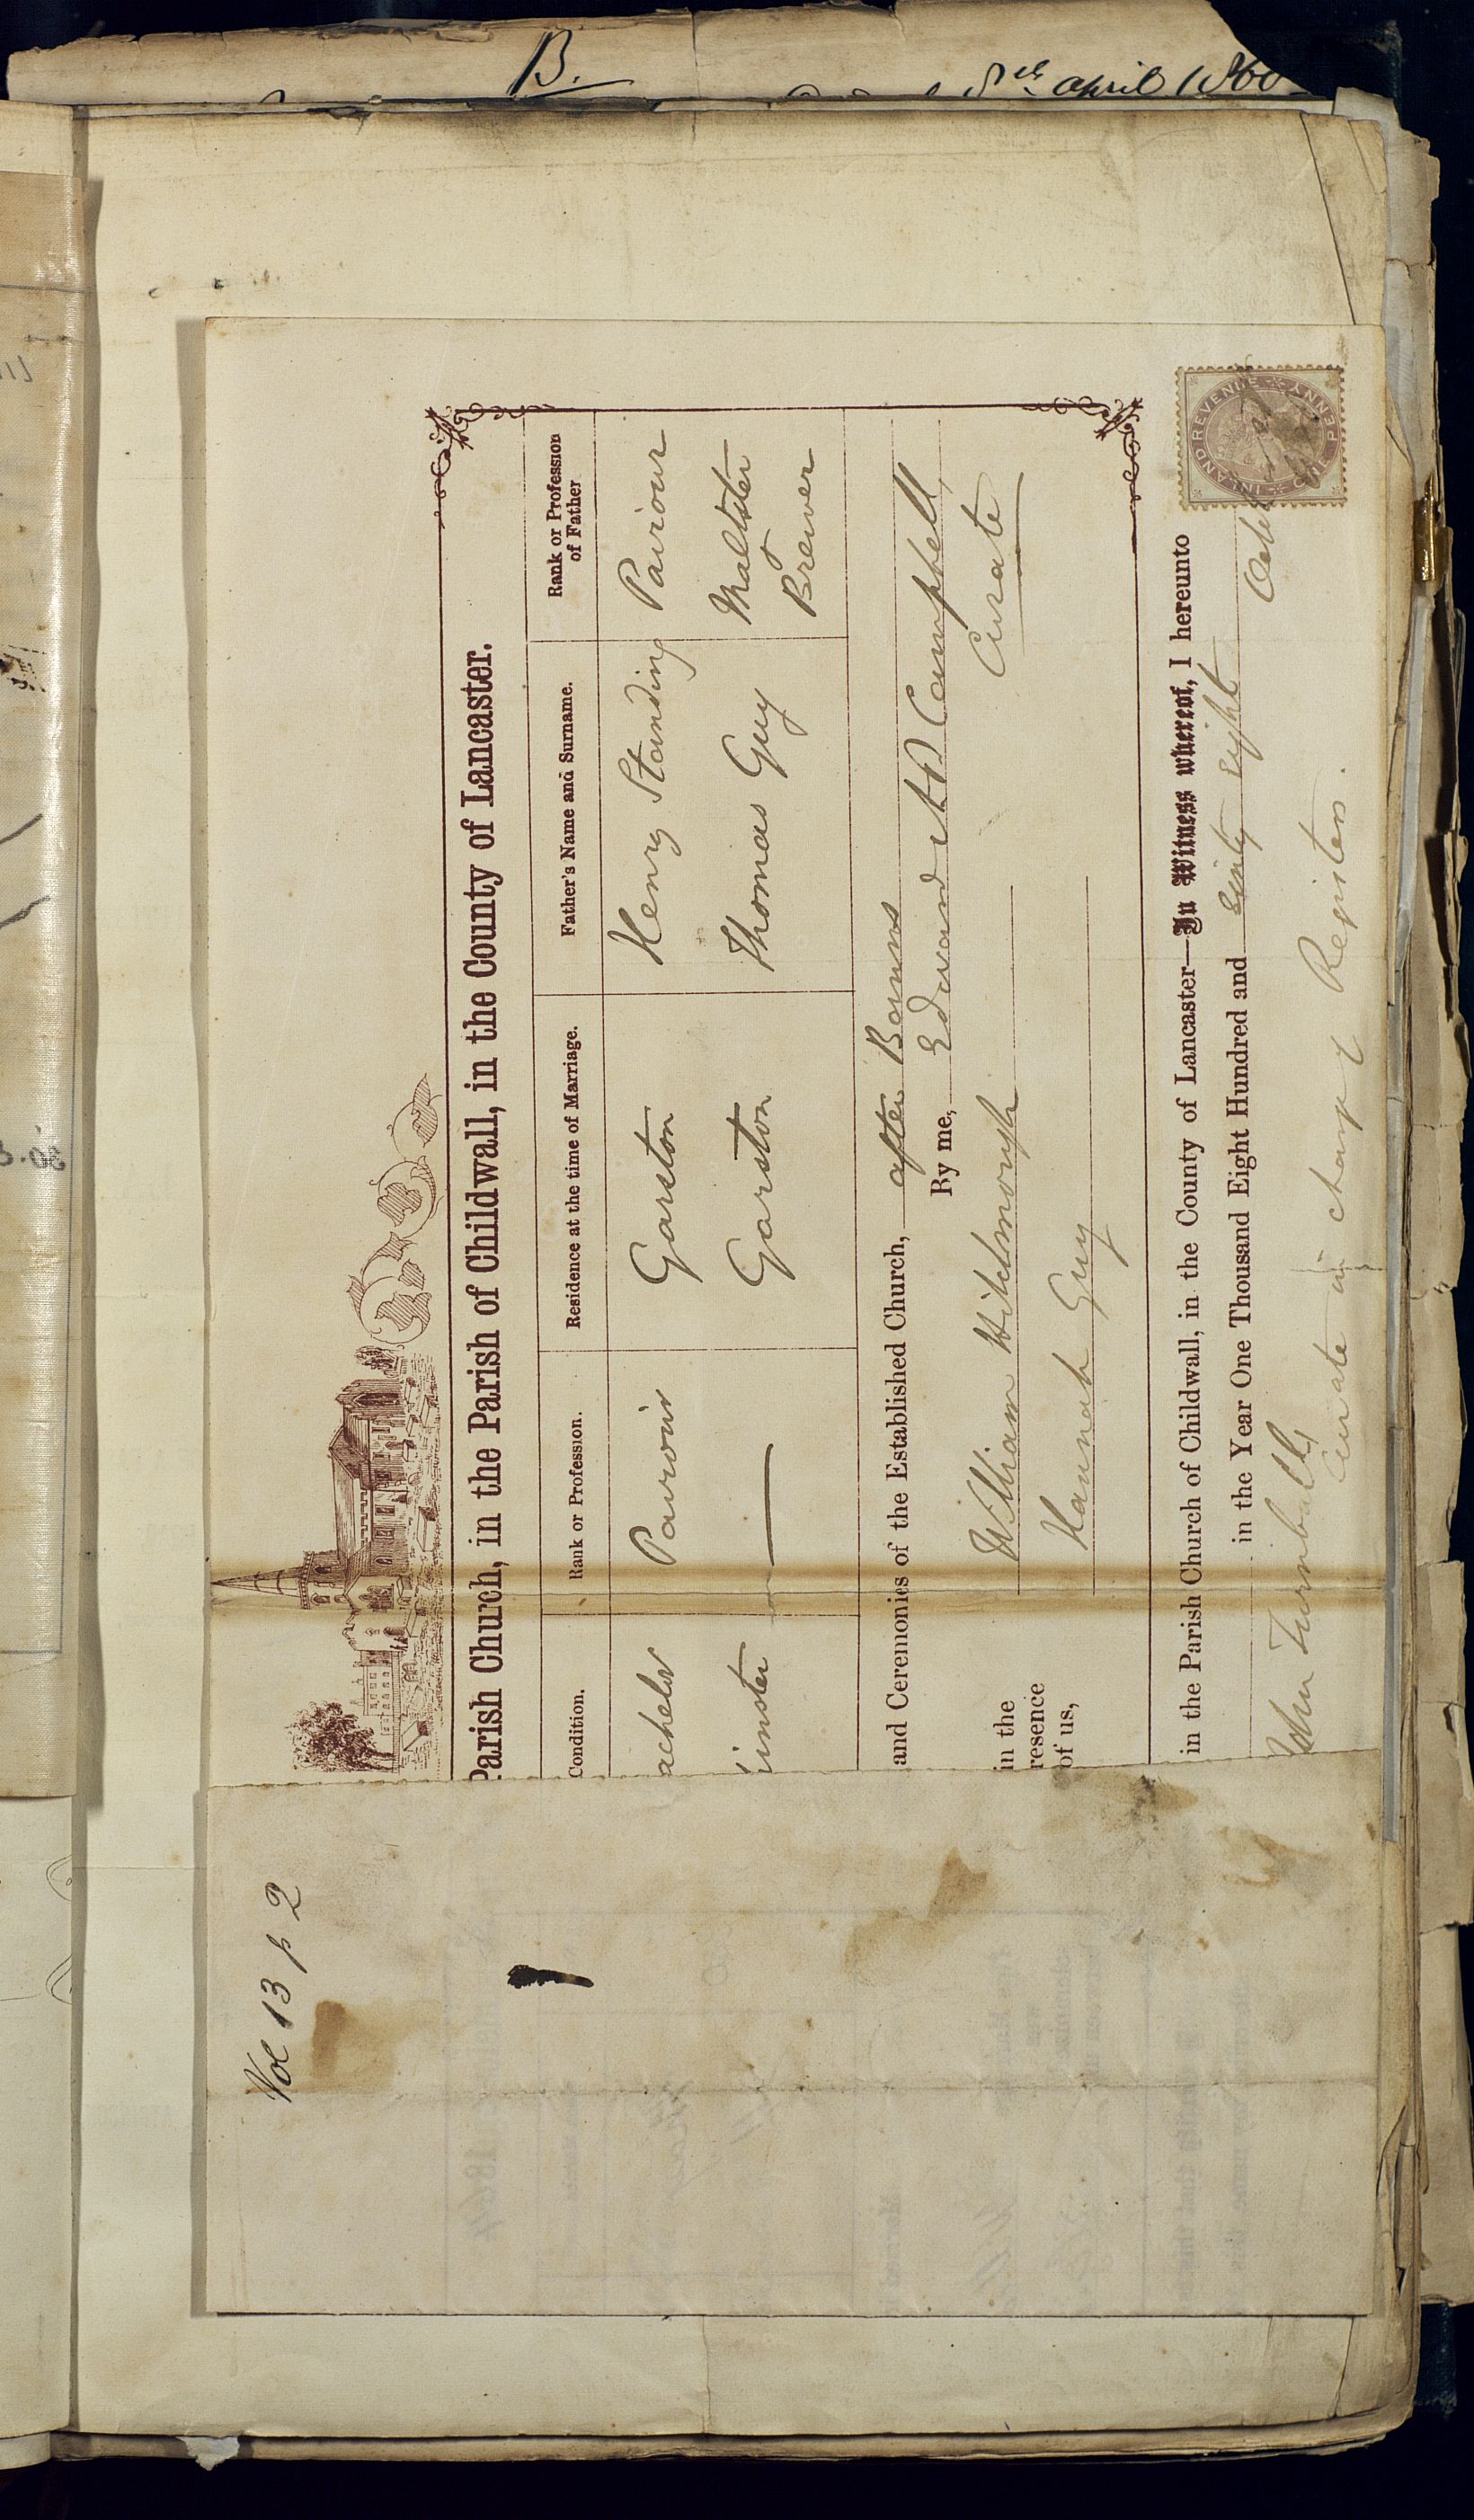 B.
8th april 1860
Vol 13 p 2
Parish Church, in the Parish of Childwall, in the County of Lancaster.
Condition. Rank or Profession. Residence at the time of Marriage. Father's Name and Surname. Rank or Profession of Father
achelor Paviour Garston Henry Standing Paviour
inster — Garston Thomas Guy Maltster
Brewer
and Ceremonies of the Established Church, after Banns
By me, Edward Campbell,
Curate
in the
resence
of us,
William Hitchmough
Hannah Guy
in the Parish Church of Childwall, in the County of Lancaster—In Witness whereof, I hereunto
in the Year One Thousand Eight Hundred and Sixty Eight
John Turnbull,
Curate in charge of Registers.
INLAND REVENUE ONE PENNY